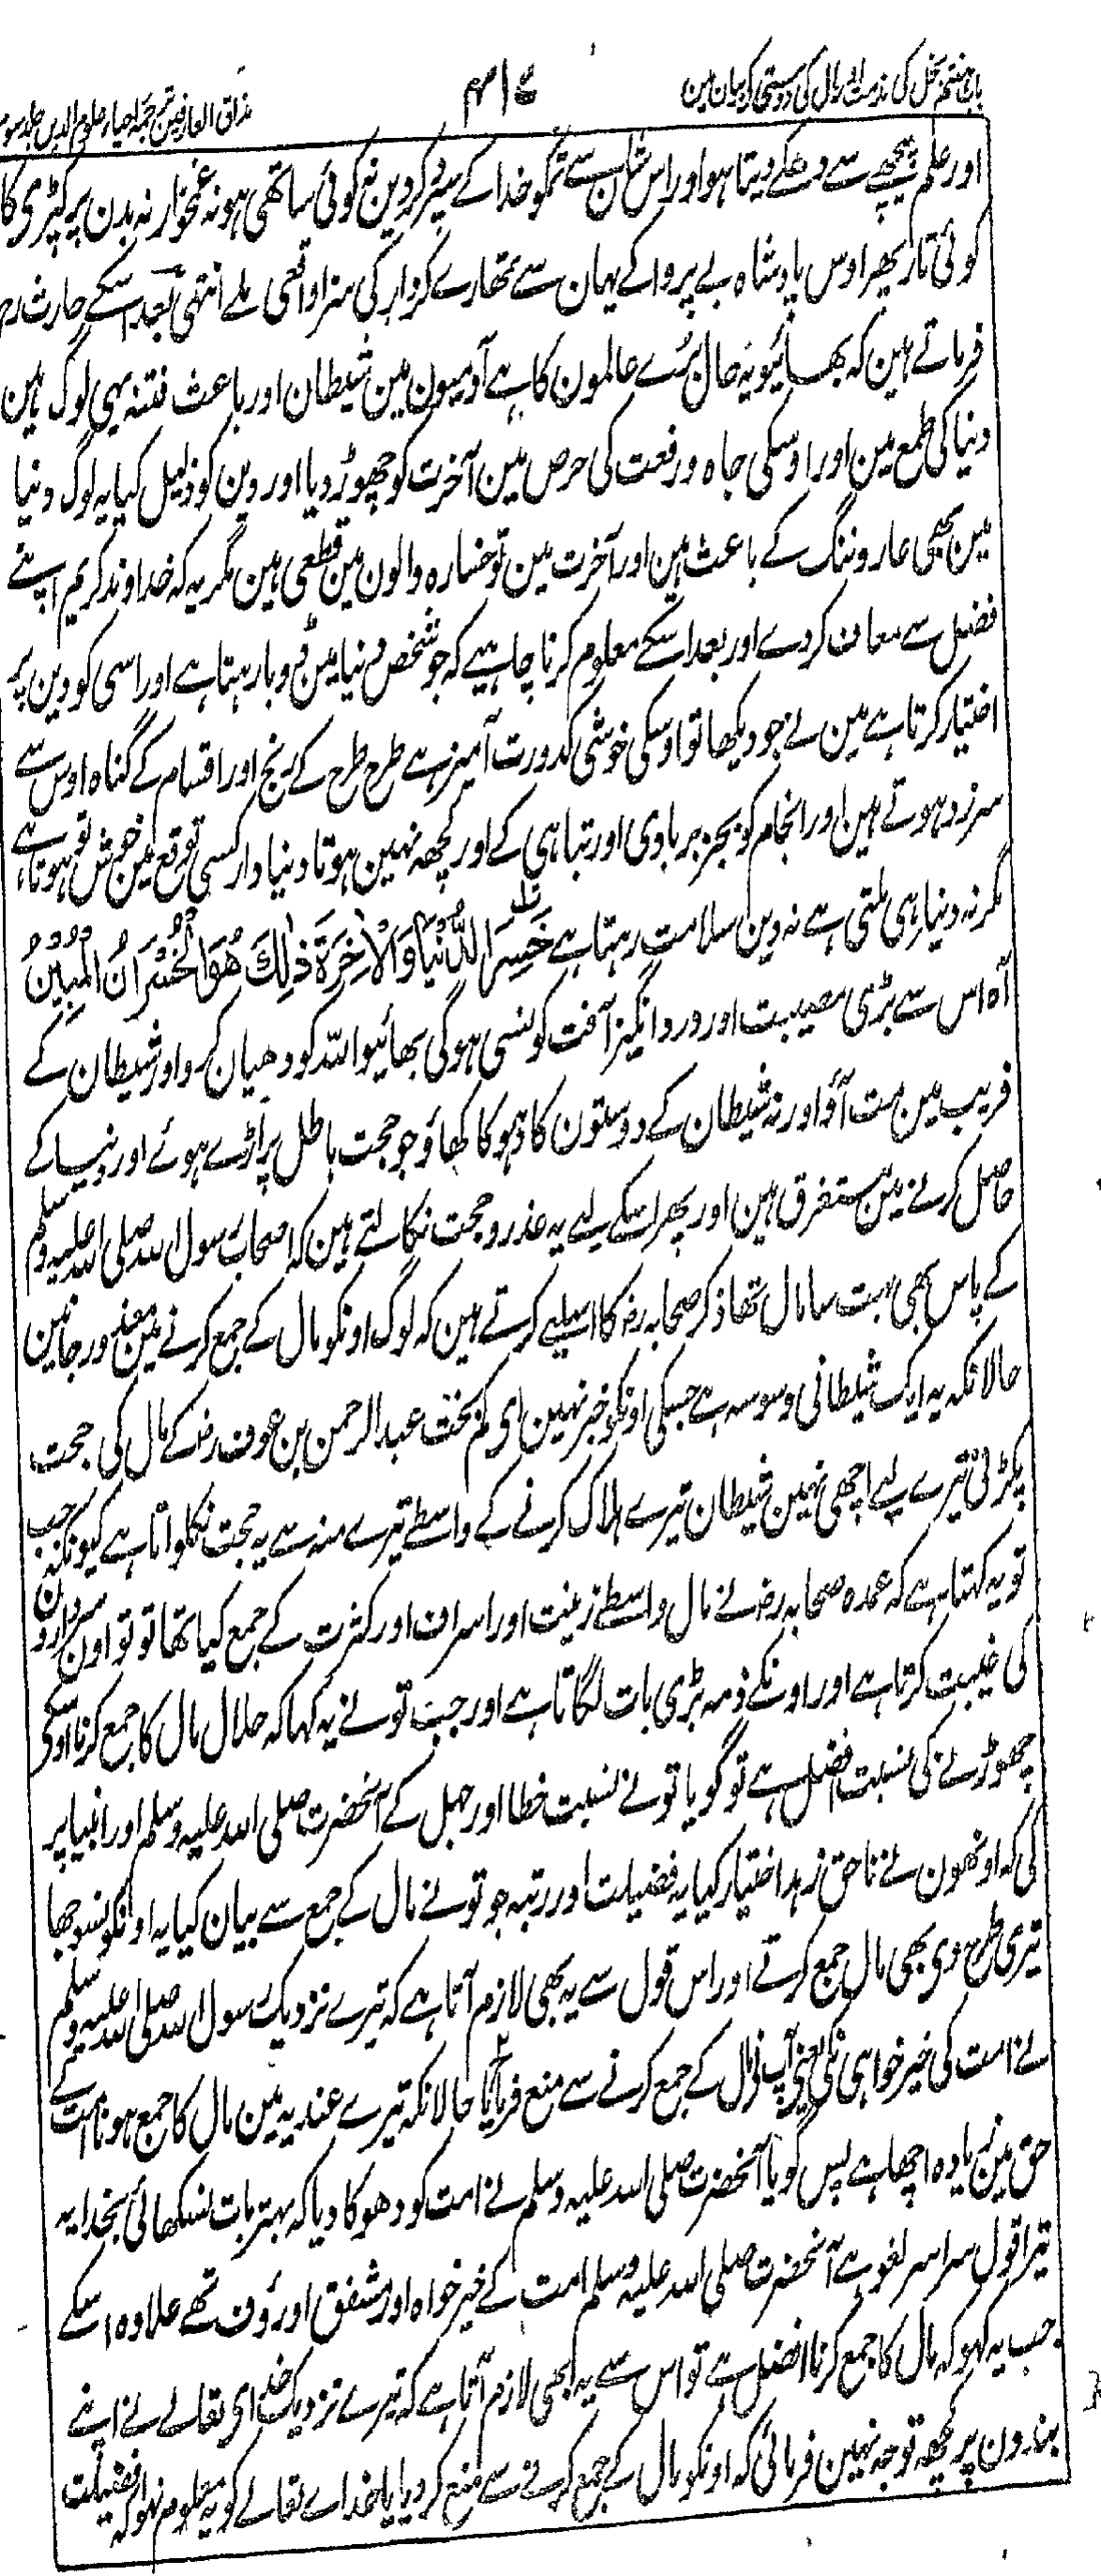 باب ہفتم بخل کی مذمت اور مال کی دوستی کے بیان مین
۴۱۶
مذاق العارفین ترجمہ احیاء علوم الدین جلد سوم
اور علم پیچھے سے دھکے دیتا ہو اور اس شان سے تمکو خدا کے سپرد کر دین نہ کوئی ساتھی ہو نہ غمخوار نہ بدن پر کپڑی کا
کوئی تار پھر اوس پادشاہ بے پروا کے یہان سے تمھارے کردار کی سزا واقعی ملے انتہی بعد اسکے حارث رح
فرماتے ہین کہ بھائیو یہ حال بُرے عالمون کا ہے آدمیون مین شیطان اور باعث فتنہ یہی لوگ ہین
دنیا کی طمع مین اور اوسکی جاہ و رفعت کی حرص مین آخرت کو چھوڑ دیا اور دین کو ذلیل کیا یہ لوگ دنیا
مین بھی عار و ننگ کے باعث ہین اور آخرت مین تو خسارہ والون مین قطعی ہین مگر یہ کہ خداوند کریم اپنے
فضل سے معاف کر دے اور بعد اسکے معلوم کرنا چاہیے کہ جو شخص دنیا مین ڈوبا رہتا ہے اور اسی کو دین پر
اختیار کرتا ہے مین نے جو دیکھا تو اوسکی خوشی کدورت آمیز ہے طرح طرح کے رنج اور اقسام کے گناہ اوس سے
سرزد ہوتے ہین اور انجام کو بجز بربادی اور تباہی کے اور کچھ نہین ہوتا دنیا دار کسی توقع مین خوش تو ہوتا ہے
مگر نہ دنیا ہی ملتی ہے نہ دین سلامت رہتا ہے خَسِرَ الدُّنْيَا وَالْاٰخِرَةَ ذٰلِكَ هُوَ الْخُسْرَانُ الْمُبِيْنُ
آہ اس سے بڑی مصیبت اور درد انگیز آفت کونسی ہوگی بھائیو اللہ کو دھیان کرو اور شیطان کے
فریب مین مت آؤ اور نہ شیطان کے دوستون کا دہوکا کھاؤ جو حجت باطل پر اڑے ہوئے اور دنیا کے
حاصل کرنے مین مستغرق ہین اور پھر اسکے لیے یہ عذر و حجت نکالتے ہین کہ اصحاب رسول اللہ صلی اللہ علیہ وسلم
کے پاس بھی بہت سا مال تھا ذکر صحابہ رض کا اسلیے کرتے ہین کہ لوگ اونکو مال کے جمع کرنے مین معذور جانین
حالانکہ یہ ایک شیطانی وسوسہ ہے جسکی اونکو خبر نہین ای کم بخت عبد الرحمن بن عوف رض کے مال کی حجت
پکڑنی تیرے لیے اچھی نہین شیطان تیرے ہلاک کرنے کے واسطے تیرے منہ سے یہ حجت نکلواتا ہے کیونکہ جب
تو یہ کہتا ہے کہ عمدہ صحابہ رض نے مال واسطے زینت اور اسراف اور کثرت کے جمع کیا تھا تو تو اون سردارون
کی غیبت کرتا ہے اور اونکے ذمہ بڑی بات لگاتا ہے اور جب تونے یہ کہا کہ حلال مال کا جمع کرنا اوسکی
چھوڑنے کی نسبت افضل ہے تو گویا تونے نسبت خطا اور جہل کے آنحضرت صلی اللہ علیہ وسلم اور انبیا پر
کی کہ اونھون نے ناحق زہد اختیار کیا یہ فضیلت اور رتبہ جو تونے مال کے جمع سے بیان کیا یہ اونکو نسوجھا
تیری طرح وی بھی مال جمع کرتے اور اس قول سے یہ بھی لازم آتا ہے کہ تیرے نزدیک رسول اللہ صلی اللہ علیہ وسلم
نے امت کی خیر خواہی نکی یعنی آپ نے مال کے جمع کرنے سے منع فرمایا حالانکہ تیرے عندیہ مین مال کا جمع ہونا امت کے
حق مین زیادہ اچھا ہے پس گویا آنحضرت صلی اللہ علیہ وسلم نے امت کو دھوکا دیا کہ بہتر بات نسکھائی بخدا یہ
تیرا قول سراسر لغو ہے آنحضرت صلی اللہ علیہ وسلم امت کے خیر خواہ اور مشفق اور رؤف تھے علاوہ اسکے
جب یہ کہو کہ مال کا جمع کرنا افضل ہے تو اس سے یہ بھی لازم آتا ہے کہ تیرے نزدیک خدای تعالے نے اپنے
بندون پر کچھ توجہ نہین فرمائی کہ اونکو مال کے جمع کرنے سے منع کر دیا یا خداے تعالے کو یہ معلوم نہوا کہ فضیلت